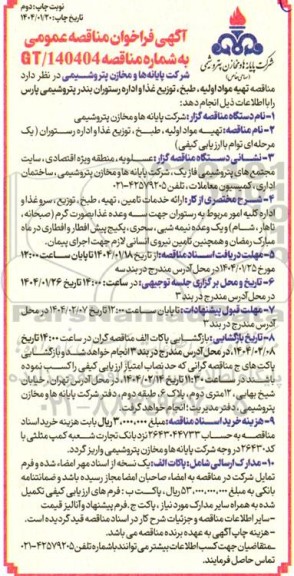 نوبت چاپ: دوم
تاریخ چاپ: ۱۴۰۴/۰۱/۲۰
آگهی فراخوان مناقصه عمومی
به شماره مناقصه GT/140404
شرکت پایانه ها و مخازن پتروشیمی
(سهامی خاص)
شرکت پایانه‌ها و مخازن پتروشیمی در نظر دارد
مناقصه تهیه مواد اولیه، طبخ، توزیع غذا و اداره رستوران بندر پتروشیمی پارس
را با اطلاعات ذیل انجام دهد:
۱- نام دستگاه مناقصه گزار: شرکت پایانه ها و مخازن پتروشیمی
۲- نام مناقصه: تهیه مواد اولیه، طبخ، توزیع غذا و اداره رستوران (یک
مرحله ای توام با ارزیابی کیفی)
۳- نشانی دستگاه مناقصه گزار: عسلویه، منطقه ویژه اقتصادی، سایت
مجتمع های پتروشیمی فاز یک، شرکت پایانه ها و مخازن پتروشیمی، ساختمان
اداری، کمیسیون معاملات، تلفن ۴۲۵۷۹۲۰۵-۰۲۱
۴- شرح مختصری از کار: ارائه خدمات تامین، تهیه، طبخ، توزیع، سرو غذا و
اداره کلیه امور مربوط به رستوران جهت سه وعده غذا بصورت گرم (صبحانه،
ناهار، شام) و یک وعده نیمه شبی، سحری، پکیج پیش افطار و افطاری در ماه
مبارک رمضان و همچنین تامین نیروی انسانی لازم جهت اجرای پیمان.
۵- مهلت دریافت اسناد مناقصه: از تاریخ ۱۴۰۴/۰۱/۱۸ تا پایان ساعت ۱۲:۰۰
مورخ ۱۴۰۴/۰۱/۲۵ در محل آدرس مندرج در بند سه
۶- تاریخ و محل برگزاری جلسه توجیهی: در ساعت ۱۴:۰۰ تاریخ ۱۴۰۴/۰۱/۲۶
در محل آدرس مندرج در بند ۳
۷- مهلت قبول پیشنهادات: تا پایان ساعت ۱۲:۰۰ تاریخ ۱۴۰۴/۰۲/۰۷ در محل
آدرس مندرج در بند ۳
۸- تاریخ بازگشایی: بازگشایی پاکات الف مناقصه گران در ساعت ۱۴:۰۰ تاریخ
۱۴۰۴/۰۲/۰۸، در محل آدرس مندرج در بند ۳ انجام خواهد شد و بازگشای
پاکت های ج مناقصه گرانی که حد نصاب امتیاز ارزیابی کیفی را کسب نموده
باشند در ساعت ۱۱:۳۰ تاریخ ۱۴۰۴/۰۲/۱۴، در محل آدرس تهران، خیابان
شیخ بهایی، ۱۲ متری دوم، پلاک ۶، طبقه دوم، دفتر شرکت پایانه ها و مخازن
پتروشیمی، دفتر مدیریت؛ انجام خواهد گرفت.
۹- هزینه خرید اسناد مناقصه: مبلغ ۳,۰۰۰,۰۰۰ ریال بابت هزینه خرید اسناد
مناقصه به حساب ۲۶۴۳۰۴۴۷۳۳ نزد بانک تجارت شعبه کمپ مثلثی با
کد ۲۶۴۳۰ در وجه شرکت پایانه ها و مخازن پتروشیمی واریز گردد.
۱۰- مدارک ارسالی شامل: پاکات الف: یک نسخه از اسناد مهر امضاء شده و فرم
تمایل شرکت در مناقصه به امضاء صاحبان امضا مجاز رسیده باشد و ضمانتنامه
بانکی به مبلغ ۵۳,۰۰۰,۰۰۰,۰۰۰ ریال، پاکات ب: فرم های ارزیابی کیفی تکمیل
شده به همراه سایر مدارک مورد نیاز، پاکات ج. فرم پیشنهاد و آنالیز قیمت
-سایر اطلاعات مناقصه و جزئیات شرح کار در اسناد مناقصه قید گردیده است.
-هزینه چاپ آگهی به عهده برنده مناقصه می باشد.
_متقاضیان جهت کسب اطلاعات بیشتر می توانند با شماره تلفن ۴۲۵۷۹۲۰۵-۰۲۱
تماس حاصل فرمایند.